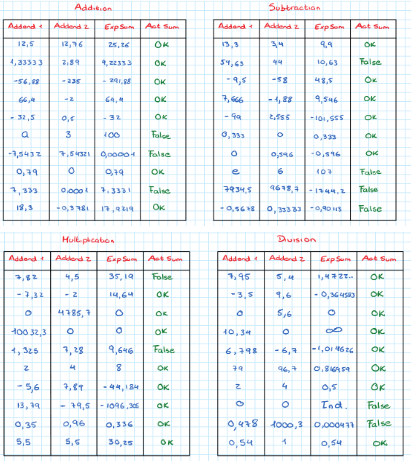 Addision
Addend 1 Addend 2 Exp Sum Act Sum
12,5 12,76 25,26 OK
1,33333 2,89 4,22333 OK
-56,88 -235 -291,88 OK
66,4 -2 64,4 OK
-32,5 0,5 -32 OK
a 3 100 False
-7,5432 7,54321 0,00001 False
0,79 0 0,79 OK
7,333 0,0001 7,3331 False
18,3 -0,3781 17,9219 OK
Subtraction
Addend 1 Addend 2 Exp Sum Act Sum
13,3 3,4 9,9 OK
54,63 44 10,63 False
-9,5 -58 48,5 OK
7,666 -1,88 9,546 OK
-99 2,555 -101,555 OK
0,333 0 0,333 OK
0 0,596 -0,596 OK
e 6 107 False
7934,5 9678,7 -1744,2 False
-0,5678 0,33333 -0,90113 False
Multiplication
Addend 1 Addend 2 Exp Sum Act Sum
7,82 4,5 35,19 False
-7,32 -2 14,64 OK
0 4785,7 0 OK
10032,3 0 0 OK
1,325 7,28 9,646 False
2 4 8 OK
-5,6 7,89 -44,184 OK
13,79 -79,5 -1096,305 OK
0,35 0,96 0,336 OK
5,5 5,5 30,25 OK
Division
Addend 1 Addend 2 Exp Sum Act Sum
7,95 5,4 1,4722.. OK
-3,5 9,6 -0,364583 OK
0 5,6 0 OK
10,34 0 ∞ OK
6,798 -6,7 -1,014626 OK
79 96,7 0,816959 OK
2 4 0,5 OK
0 0 Ind. False
0,478 1000,3 0,000477 False
0,54 1 0,54 OK